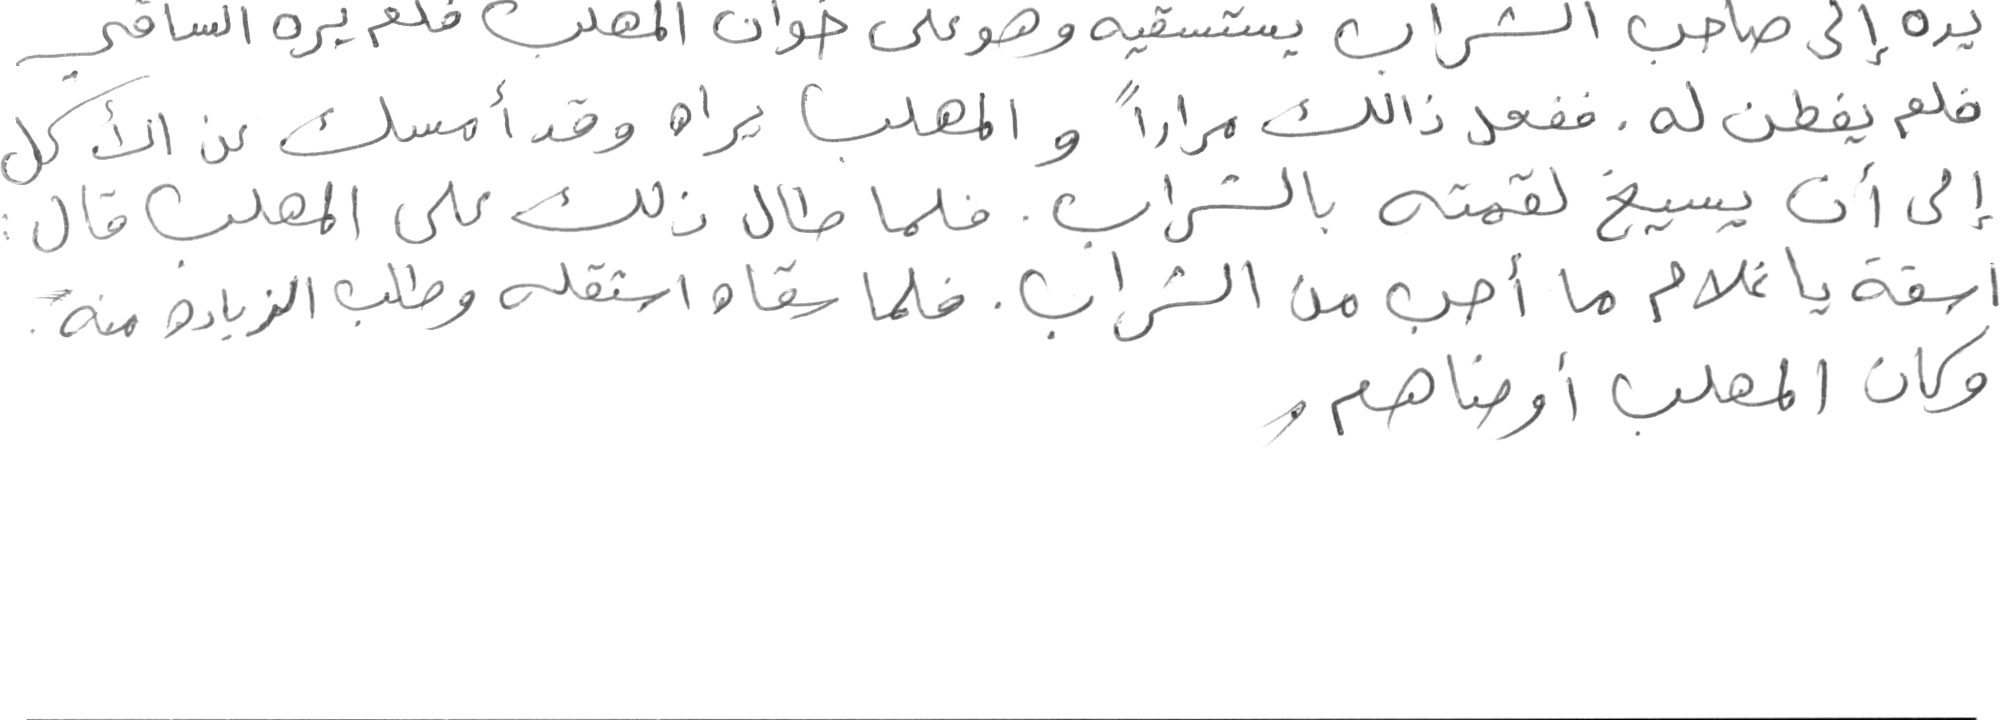 يده إلى صاحب الشراب يستسقيه وهو على خوان المهلب فلم يره الساقي
فلم يفطن له. ففعل ذالك مراراً و المهلب يراه وقد أمسك عن الأكل
إلى أن يسيغ لقمته بالشراب. فلما طال ذلك على المهلب قال:
اسقة يا غلام ما أحب من الشراب. فلما سقاه استقله وطلب الزيادة منه.
وكان المهلب أوصاهم